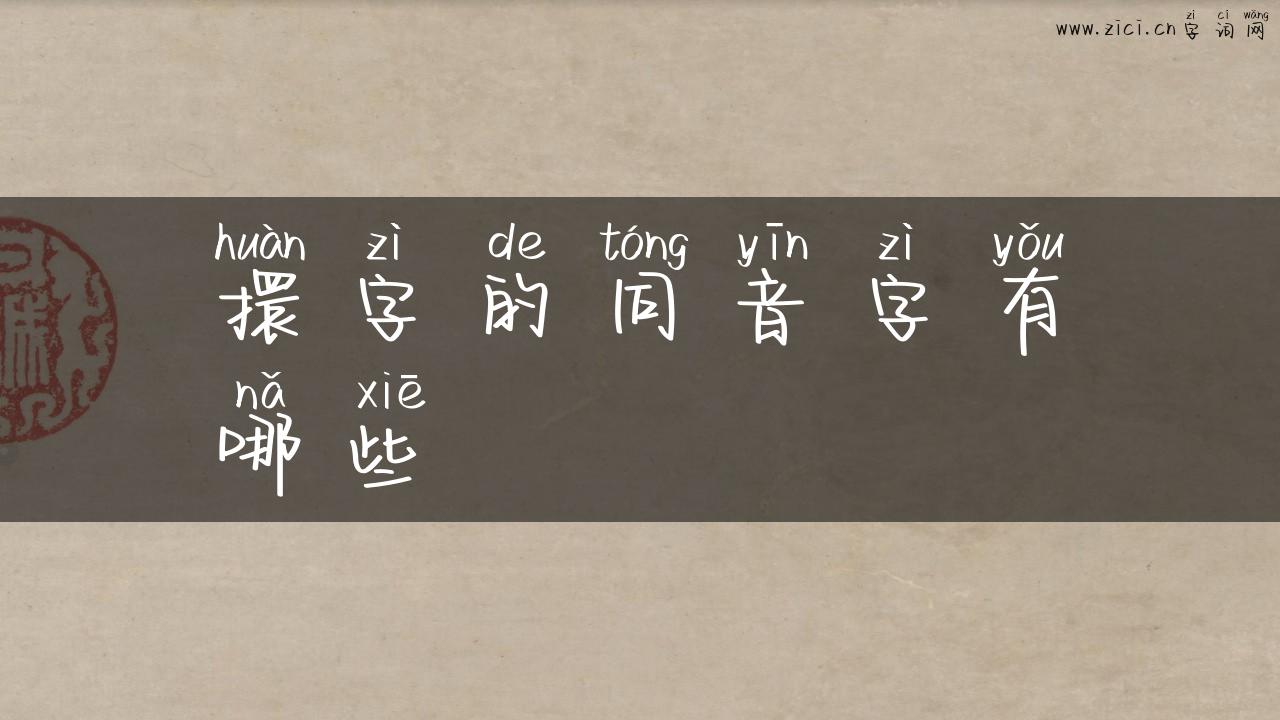 www.zici.cn zì cí wǎng
字词网
huàn zì de tóng yīn zì yǒu
擐字的同音字有
nǎ xiē
哪些